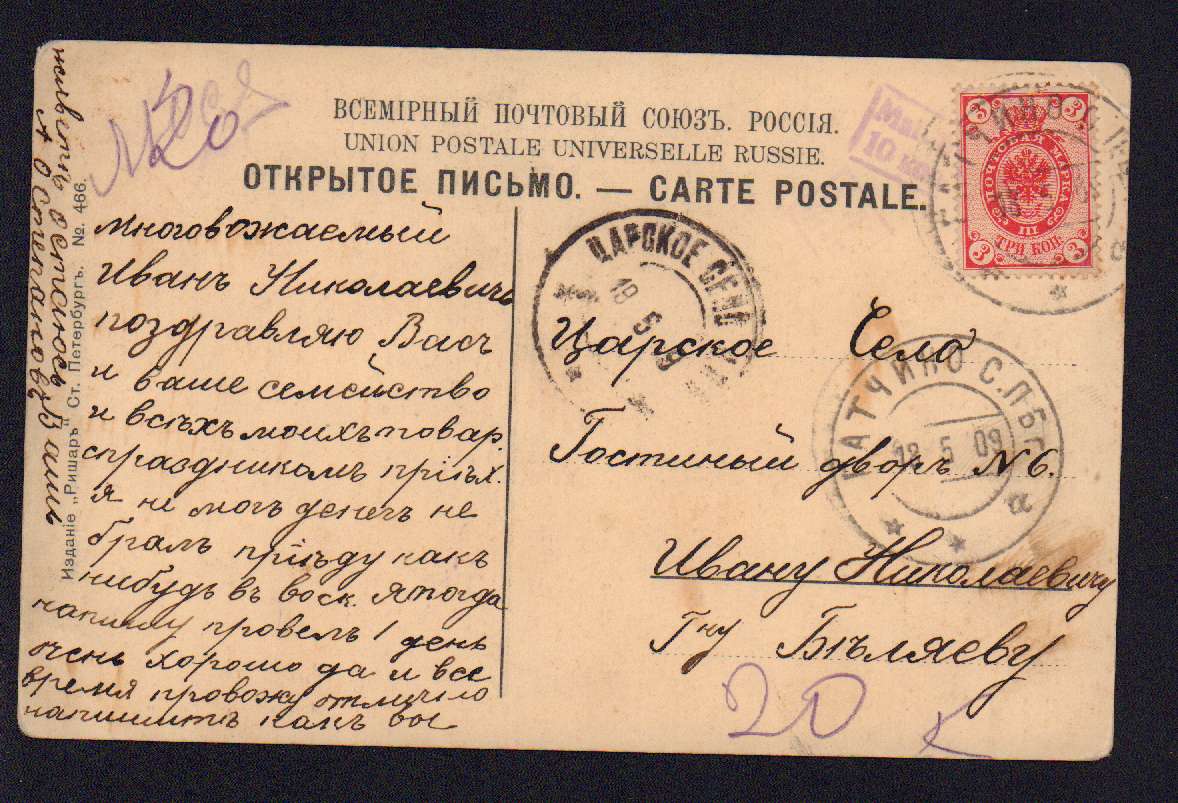 ВСЕМІРНЫЙ ПОЧТОВЫЙ СОЮЗЪ. РОССІЯ.
UNION POSTALE UNIVERSELLE RUSSIE.
ОТКРЫТОЕ ПИСЬМО. — CARTE POSTALE.
многовожаемый
Иванъ Николаевичъ
поздравляю Васъ
и ваше семейство
и всѣхъ моихъ товар.
спраздникомъ пріѣх.
я не могъ денегъ не
бралъ пріѣду какъ
нибудь въ воск. я тогда
напишу провелъ 1 день
очень хорошо да и все
время провожу отлично
напишитъ какъ вы
живетъ остаюсь Вашъ
А Степановъ
Изданіе „Ришаръ" Ст. Петербургъ. № 466.
Царское Село
Гостиный дворъ № 6.
Ивану Николаевичу
Гну Бѣляеву
ЦАРСКОЕ СЕЛО
19 5 09
ГАТЧИНО С.П.БГ.
18 5 09
а
3 3
ПОЧТОВАЯ МАРКА
III
ТРИ КОП
3 3
10 коп
20
20